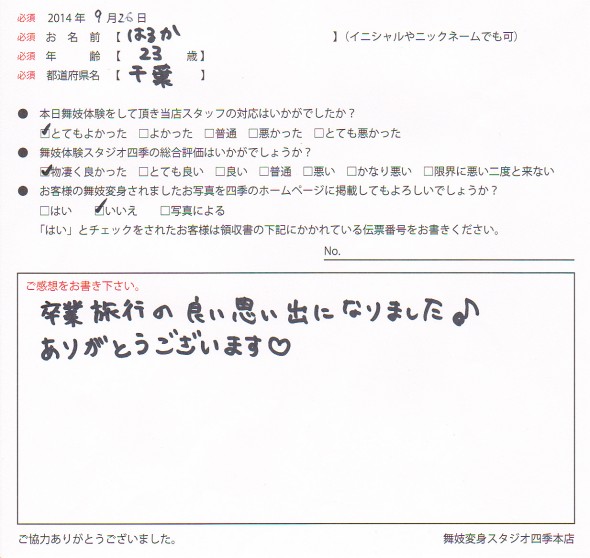 必須 2014年 9月26日
必須 お名前【 はるか 】（イニシャルやニックネームでも可）
必須 年齢【 23 歳】
必須 都道府県名【 千葉 】
● 本日舞妓体験をして頂き当店スタッフの対応はいかがでしたか？
☑とてもよかった □よかった □普通 □悪かった □とても悪かった
● 舞妓体験スタジオ四季の総合評価はいかがでしょうか？
☑物凄く良かった □とても良い □良い □普通 □悪い □かなり悪い □限界に悪い二度と来ない
● お客様の舞妓変身されましたお写真を四季のホームページに掲載してもよろしいでしょうか？
□はい ☑いいえ □写真による
「はい」とチェックをされたお客様は領収書の下記にかかれている伝票番号をお書きください。
No.
ご感想をお書き下さい。
卒業旅行の良い思い出になりました♪
ありがとうございます♡
ご協力ありがとうございました。 舞妓変身スタジオ四季本店